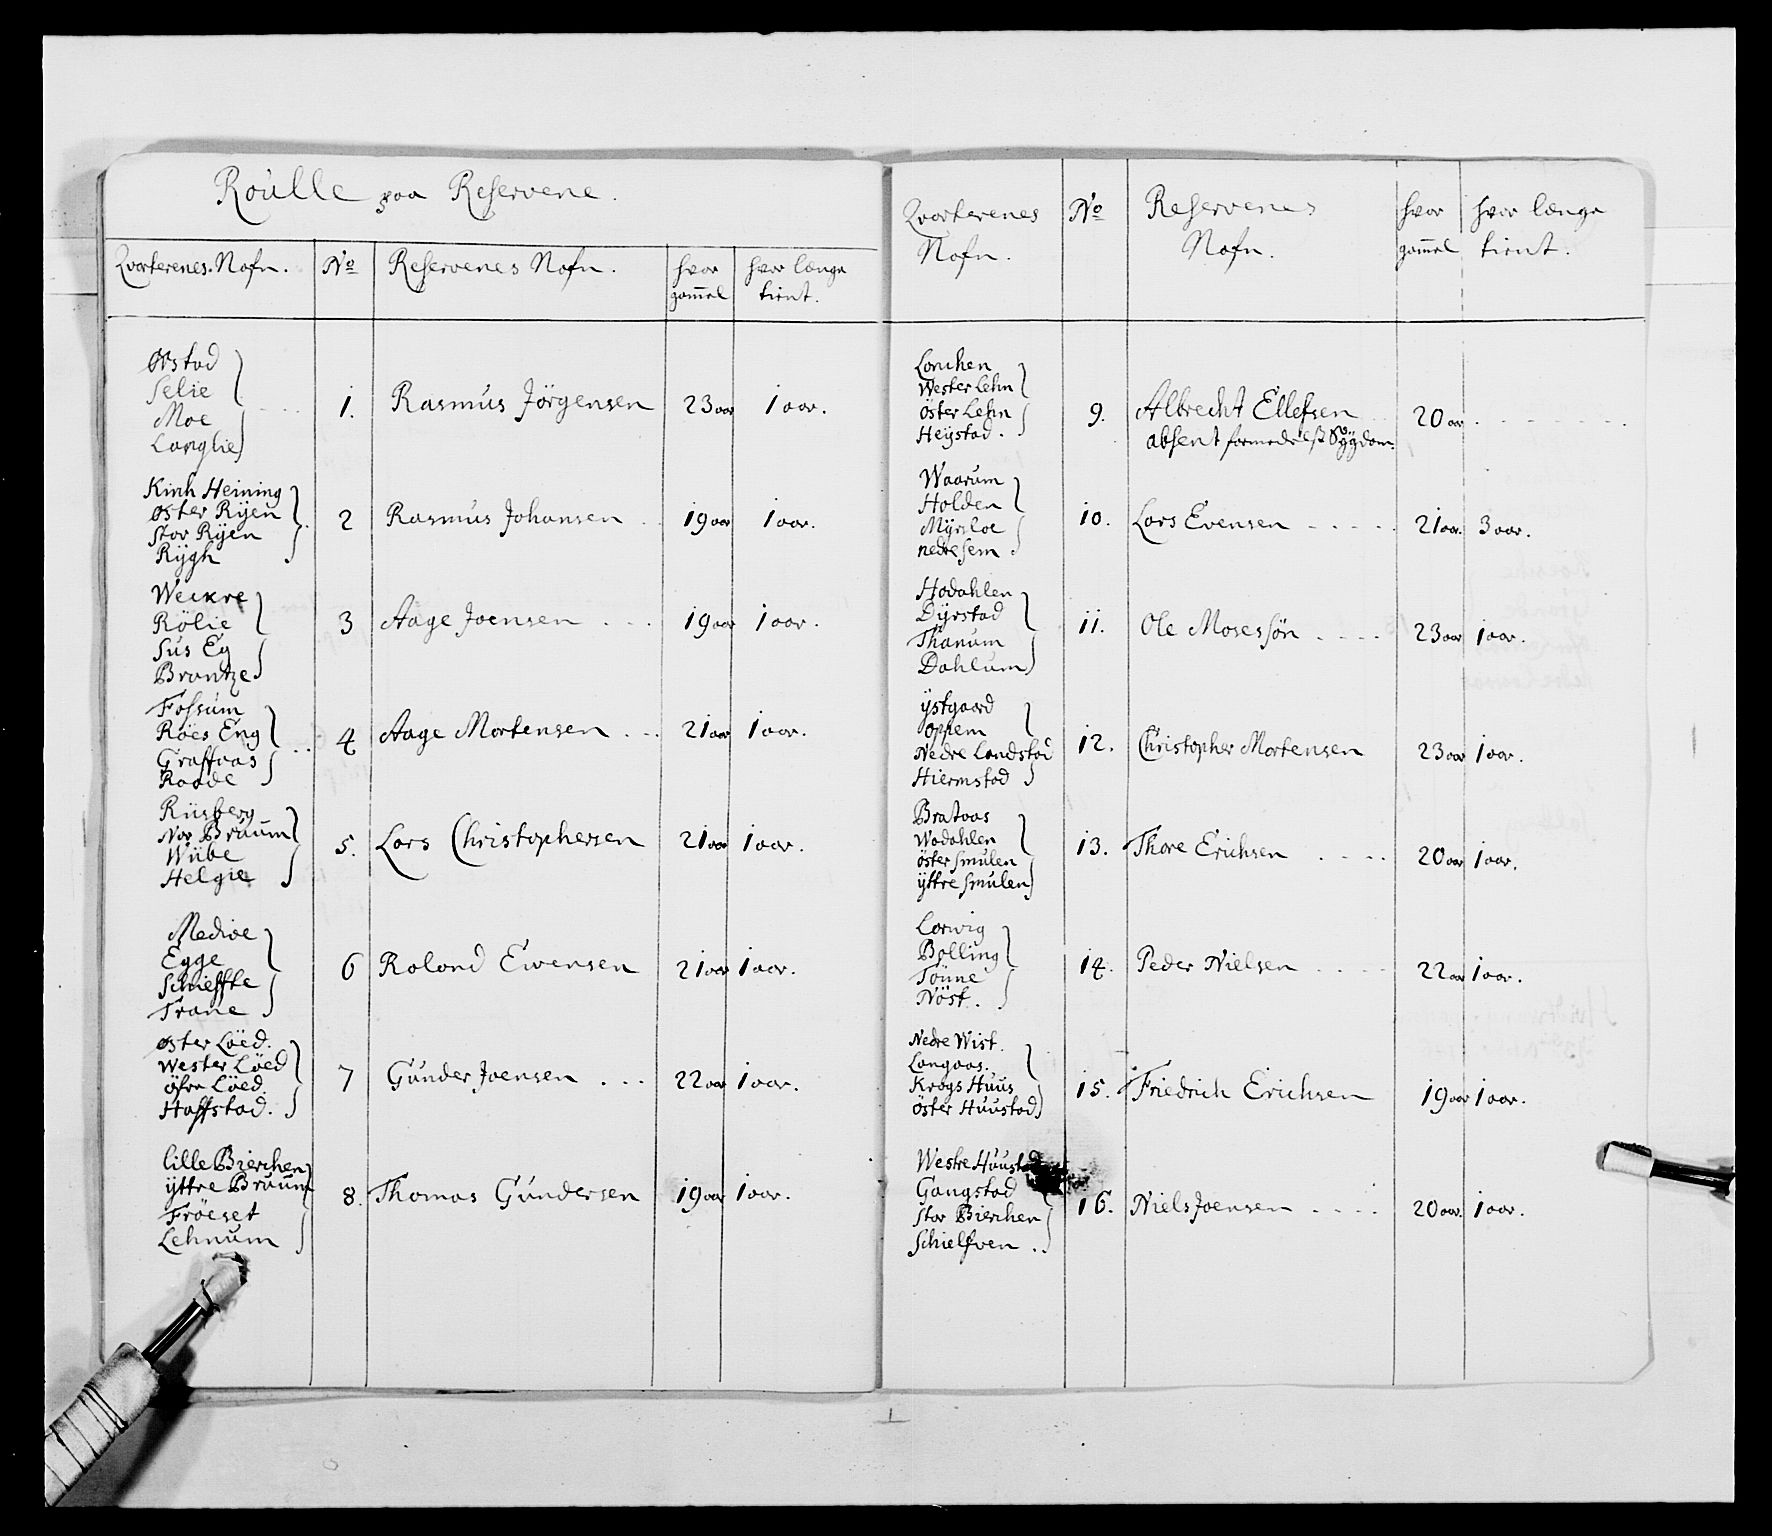 Roulle paa Reservene.
Qvarterenes Nafn. No Reservenes Nafn. hvor gammel hvor længe tient.
Østad
Selie
Moe
Langlie
1. Rasmus Jörgensen 23 aar 1 aar.
Kirch Heining
Øster Ryen
Stor Ryen
Rygh
2 Rasmus Johansen 19 aar 1 aar.
Weckre
Rölie
Sus Eg
Brantze
3 Aage Joensen 19 aar 1 aar.
Fossum
Röes Eng
Graffaas
Raade
4 Aage Mortensen 21 aar 1 aar.
Riisberg
Nor Bruum
Wiibe
Helgie
5. Lars Christophersen 21 aar 1 aar.
Medioe
Egge
Schieffte
Trane
6 Roland Ewensen 21 aar 1 aar.
Øster Löed.
Wester Löed
öfre Löed
Haffstad.
7 Gunder Joensen 22 aar 1 aar.
lille Bierchen
yttre Bruum
Fröeset
Lehnum
8. Thomas Gundersen 19 aar 1 aar.
Qvarterenes Nafn. No Reservenes Nafn. hvor gammel hvor længe tient.
Lonchen
Wester Lehn
öster Lehn
Heystad.
9. Albrecht Ellefsen 20 aar
absent formedelst Sygdom.
Waarum
Holden
Myrsloe
nedre Sem
10. Lars Evensen 21 aar. 3 aar.
Hodahlen
Dyrstad
Thanum
Dahlum
11. Ole Mosessøn 23 aar 1 aar.
ystgaard
Oppem
Nedre Landstad
Hiermstad
12. Christopher Mortensen 23 aar 1 aar.
Brataas
Wadahlen
öster Smulen
yttre Smulen
13. Thore Erichsen 20 aar 1 aar.
Lorwig
Bolling
Tönne
Nöst.
14. Peder Nielsen 22 aar 1 aar.
Nedre Wist.
Langaas.
Krogs Huus
öster Huustad
15. Friedrich Erichsen 19 aar 1 aar.
Westre Huustad
Gangstad
Stor Bierchen
Schielfven
16. Niels Joensen 20 aar. 1 aar.